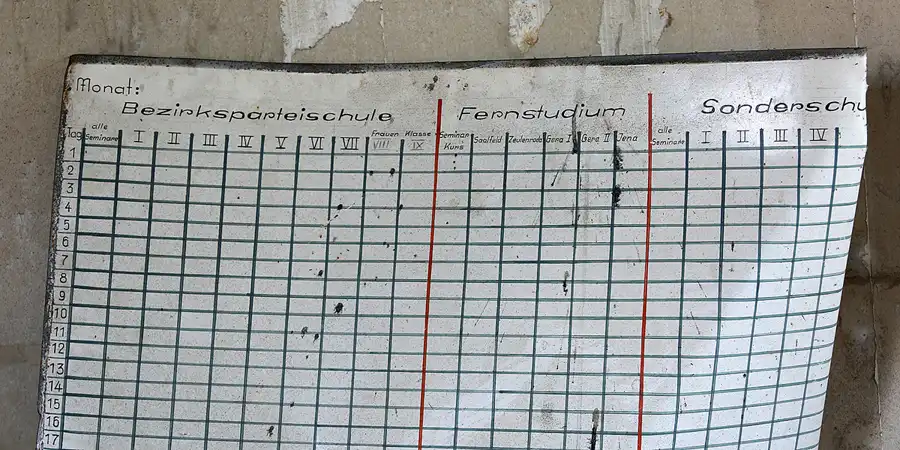 Monat:
Bezirksparteischule Fernstudium Sonderschu
Tag alle Seminare I II III IV V VI VII Frauen VIII Klasse IX Seminar Kurs Saalfeld Zeulenroda Gera I Gera II Jena alle Seminare I II III IV
1
2
3
4
5
6
7
8
9
10
11
12
13
14
15
16
17